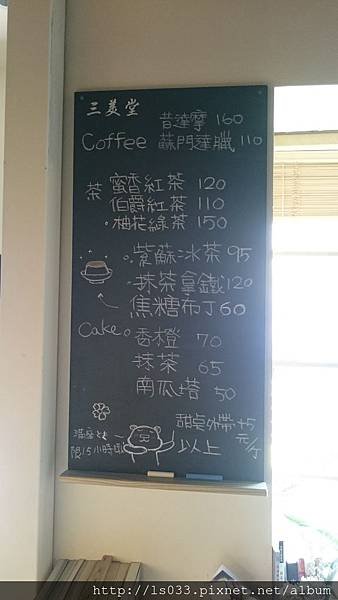 三美堂
昔達摩 160
Coffee 蘇門達臘 110
茶 蜜香紅茶 120
伯爵紅茶 110
·柚花綠茶 150
紫蘇冰茶 95
抹茶拿鐵 120
焦糖布丁 60
Cake 香橙 70
抹茶 65
南瓜塔 50
甜點外帶+5
元/个
滿座
限1.5小時
以上
http://ls033.pixnet.net/album